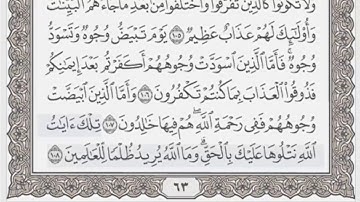 وَلَا تَكُونُوا۟ كَٱلَّذِينَ تَفَرَّقُوا۟ وَٱخْتَلَفُوا۟ مِنۢ بَعْدِ مَا جَآءَهُمُ ٱلْبَيِّنَـٰتُ
وَأُو۟لَـٰٓئِكَ لَهُمْ عَذَابٌ عَظِيمٌ ١٠٥ يَوْمَ تَبْيَضُّ وُجُوهٌ وَتَسْوَدُّ
وُجُوهٌ ۚ فَأَمَّا ٱلَّذِينَ ٱسْوَدَّتْ وُجُوهُهُمْ أَكَفَرْتُم بَعْدَ إِيمَـٰنِكُمْ
فَذُوقُوا۟ ٱلْعَذَابَ بِمَا كُنتُمْ تَكْفُرُونَ ١٠٦ وَأَمَّا ٱلَّذِينَ ٱبْيَضَّتْ
وُجُوهُهُمْ فَفِى رَحْمَةِ ٱللَّهِ ۖ هُمْ فِيهَا خَـٰلِدُونَ ١٠٧ تِلْكَ ءَايَـٰتُ
ٱللَّهِ نَتْلُوهَا عَلَيْكَ بِٱلْحَقِّ ۗ وَمَا ٱللَّهُ يُرِيدُ ظُلْمًا لِّلْعَـٰلَمِينَ ١٠٨
٦٣